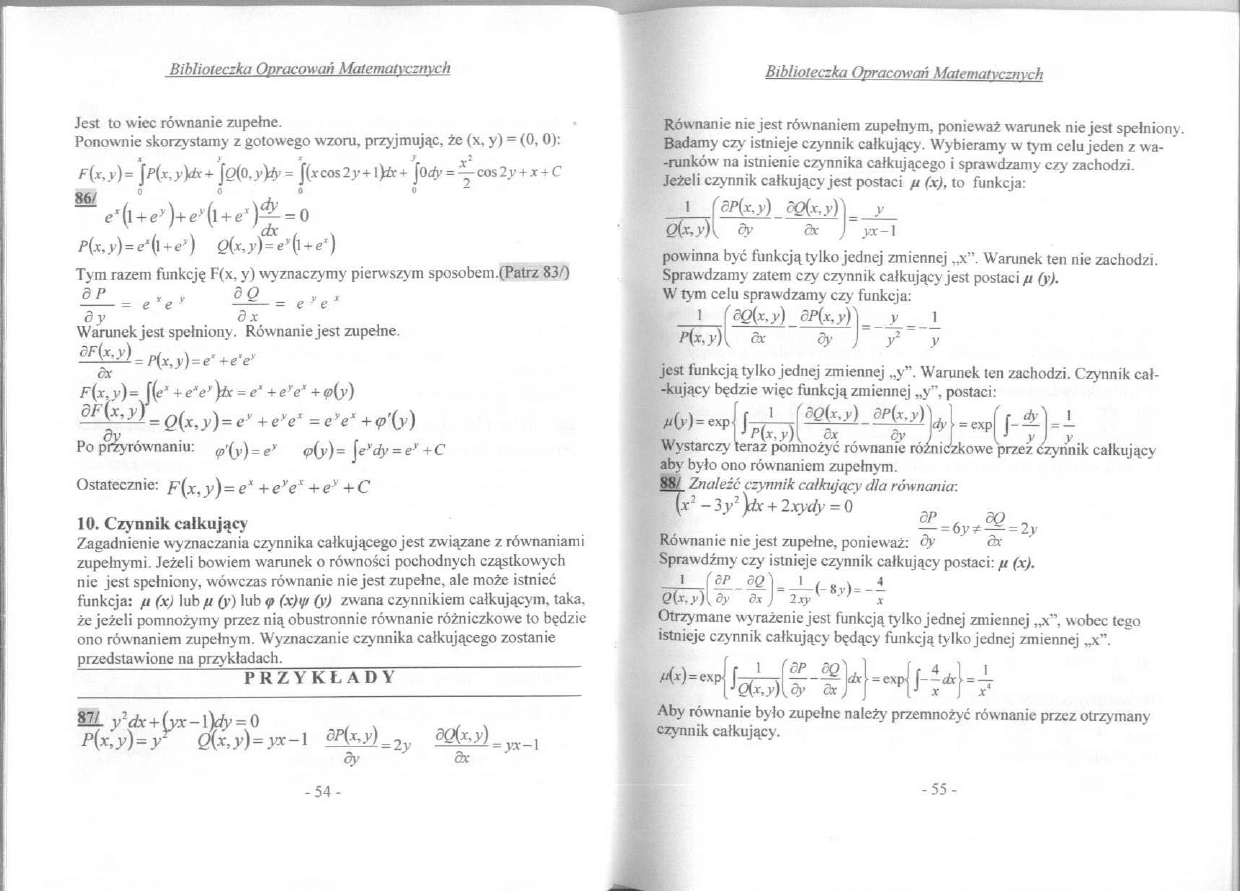 Biblioteczka Opracowań Matematycznych
Jest to wiec równanie zupełne.
Ponownie skorzystamy z gotowego wzoru, przyjmując, że (x, y) = (0, 0):
F(x,y) = ∫₀ˣ P(x,y)dx + ∫₀ʸ Q(0,y)dy = ∫₀ˣ (x cos 2y + 1)dx + ∫₀ʸ 0dy = x²/2 cos 2y + x + C
86/
eˣ(1+eʸ)+eʸ(1+eˣ) dy/dx = 0
P(x,y) = eˣ(1+eʸ) Q(x,y) = eʸ(1+eˣ)
Tym razem funkcję F(x, y) wyznaczymy pierwszym sposobem.(Patrz 83/)
∂P/∂y = eˣeʸ ∂Q/∂x = eʸeˣ
Warunek jest spełniony. Równanie jest zupełne.
∂F(x,y)/∂x = P(x,y) = eˣ + eˣeʸ
F(x,y) = ∫(eˣ + eˣeʸ)dx = eˣ + eʸeˣ + φ(y)
∂F(x,y)/∂y = Q(x,y) = eʸ + eʸeˣ = eʸeˣ + φ'(y)
Po przyrównaniu: φ'(y) = eʸ φ(y) = ∫eʸdy = eʸ + C
Ostatecznie: F(x,y) = eˣ + eʸeˣ + eʸ + C
10. Czynnik całkujący
Zagadnienie wyznaczania czynnika całkującego jest związane z równaniami
zupełnymi. Jeżeli bowiem warunek o równości pochodnych cząstkowych
nie jest spełniony, wówczas równanie nie jest zupełne, ale może istnieć
funkcja: μ (x) lub μ (y) lub φ (x)ψ (y) zwana czynnikiem całkującym, taka,
że jeżeli pomnożymy przez nią obustronnie równanie różniczkowe to będzie
ono równaniem zupełnym. Wyznaczanie czynnika całkującego zostanie
przedstawione na przykładach.
PRZYKŁADY
87/ y²dx + (yx − 1)dy = 0
P(x,y) = y² Q(x,y) = yx − 1 ∂P(x,y)/∂y = 2y ∂Q(x,y)/∂x = yx − 1
- 54 -
Biblioteczka Opracowań Matematycznych
Równanie nie jest równaniem zupełnym, ponieważ warunek nie jest spełniony.
Badamy czy istnieje czynnik całkujący. Wybieramy w tym celu jeden z wa-
-runków na istnienie czynnika całkującego i sprawdzamy czy zachodzi.
Jeżeli czynnik całkujący jest postaci μ (x), to funkcja:
1/Q(x,y) (∂P(x,y)/∂y − ∂Q(x,y)/∂x) = y/(yx−1)
powinna być funkcją tylko jednej zmiennej „x”. Warunek ten nie zachodzi.
Sprawdzamy zatem czy czynnik całkujący jest postaci μ (y).
W tym celu sprawdzamy czy funkcja:
1/P(x,y) (∂Q(x,y)/∂x − ∂P(x,y)/∂y) = −y/y² = −1/y
jest funkcją tylko jednej zmiennej „y”. Warunek ten zachodzi. Czynnik cał-
-kujący będzie więc funkcją zmiennej „y”, postaci:
μ(y) = exp{∫ 1/P(x,y) (∂Q(x,y)/∂x − ∂P(x,y)/∂y) dy} = exp(∫ −dy/y) = 1/y
Wystarczy teraz pomnożyć równanie różniczkowe przez czynnik całkujący
aby było ono równaniem zupełnym.
88/ Znaleźć czynnik całkujący dla równania:
(x² − 3y²)dx + 2xydy = 0
Równanie nie jest zupełne, ponieważ: ∂P/∂y = 6y ≠ ∂Q/∂x = 2y
Sprawdźmy czy istnieje czynnik całkujący postaci: μ (x).
1/Q(x,y) (∂P/∂y − ∂Q/∂x) = 1/2xy (−8y) = −4/x
Otrzymane wyrażenie jest funkcją tylko jednej zmiennej „x”, wobec tego
istnieje czynnik całkujący będący funkcją tylko jednej zmiennej „x”.
μ(x) = exp{∫ 1/Q(x,y) (∂P/∂y − ∂Q/∂x) dx} = exp{∫ −4/x dx} = 1/x⁴
Aby równanie było zupełne należy przemnożyć równanie przez otrzymany
czynnik całkujący.
- 55 -